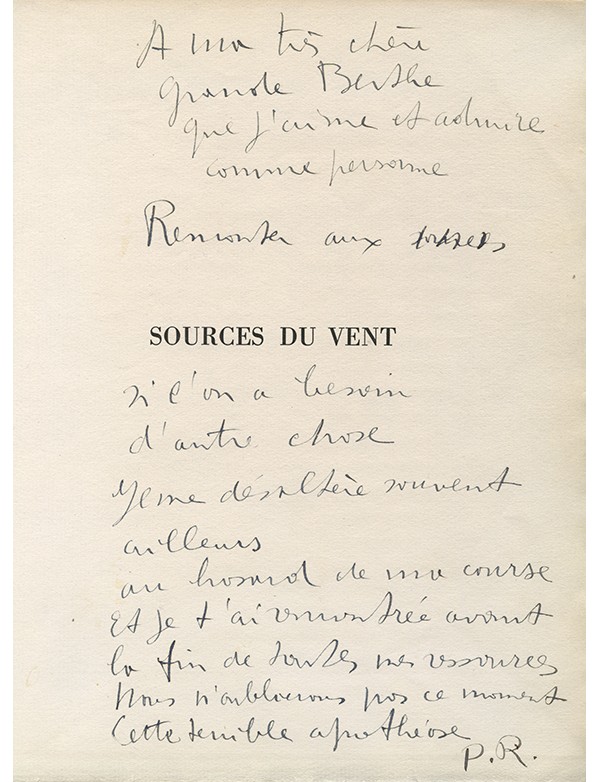 A ma très chère
grande Berthe
que j'aime et admire
comme personne
Remonter aux sources
SOURCES DU VENT
si l'on a besoin
d'autre chose
Je me désaltère souvent
ailleurs
au hasard de ma course
Et je t'ai rencontrée avant
la fin de toutes mes ressources
Nous n'oublierons pas ce moment
Cette terrible apothéose
P.R.